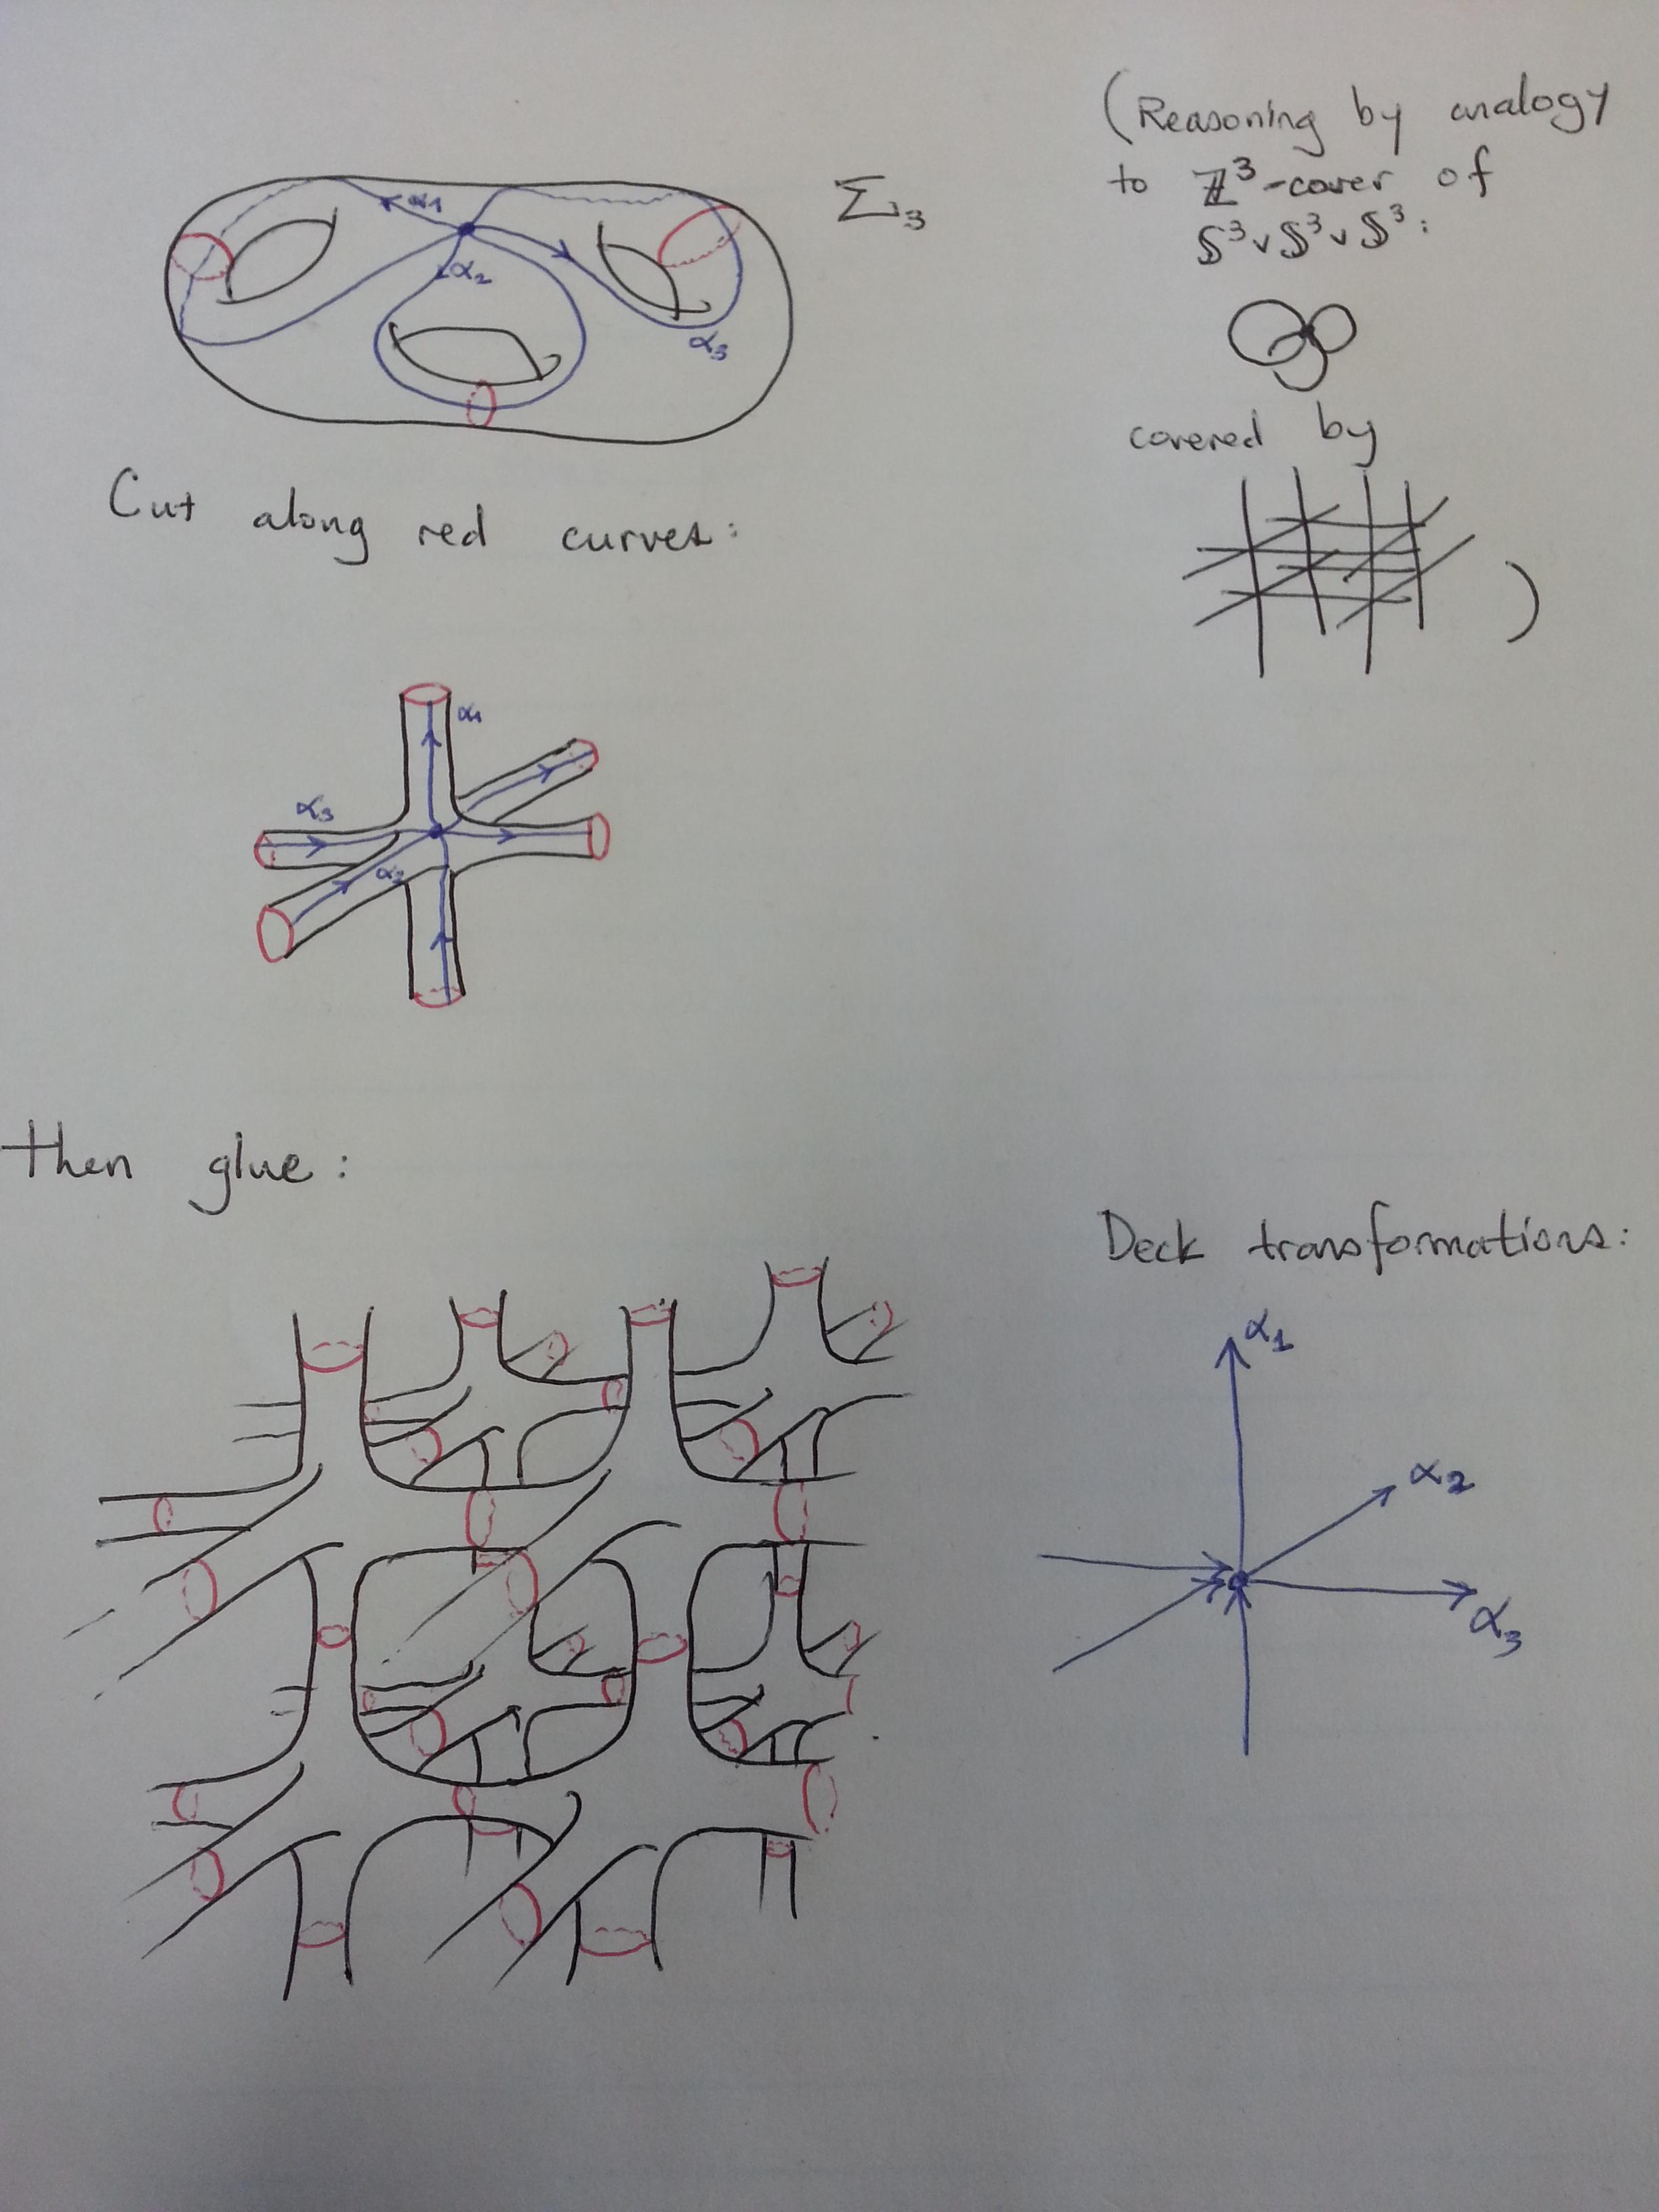 α1
α2
α3
Σ3
(Reasoning by analogy
to ℤ³-cover of
𝕊³∨𝕊³∨𝕊³:
covered by
)
Cut along red curves:
α1
α3
α2
then glue:
Deck transformations:
α1
α2
α3